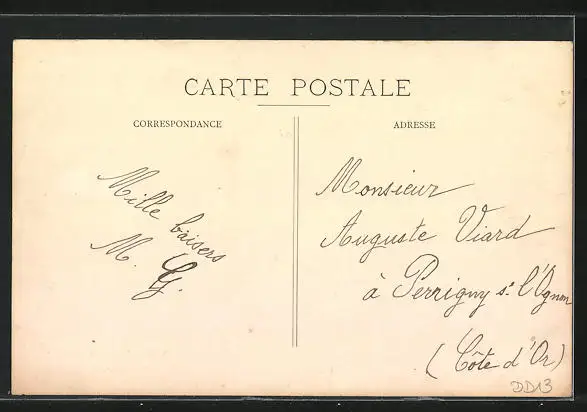 CARTE POSTALE
CORRESPONDANCE
ADRESSE
Mille baisers
M. G.
Monsieur
Auguste Viard
à Perrigny s. l'Ognon
(Côte d'Or)
DD13